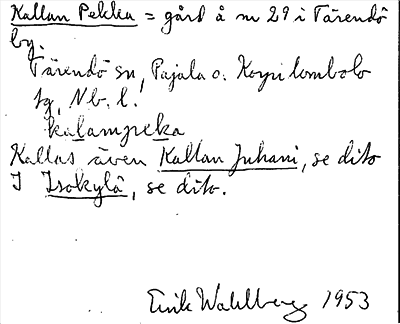 Kallan Pekka = gård å nr 29 i Tärendö
by.
Tärendö sn, Pajala o. Korpilombolo
tg, Nb. l.
kalampeka
Kallas även Kallan Juhani, se dito
I Isokylä, se dito.
Erik Wahlberg 1953